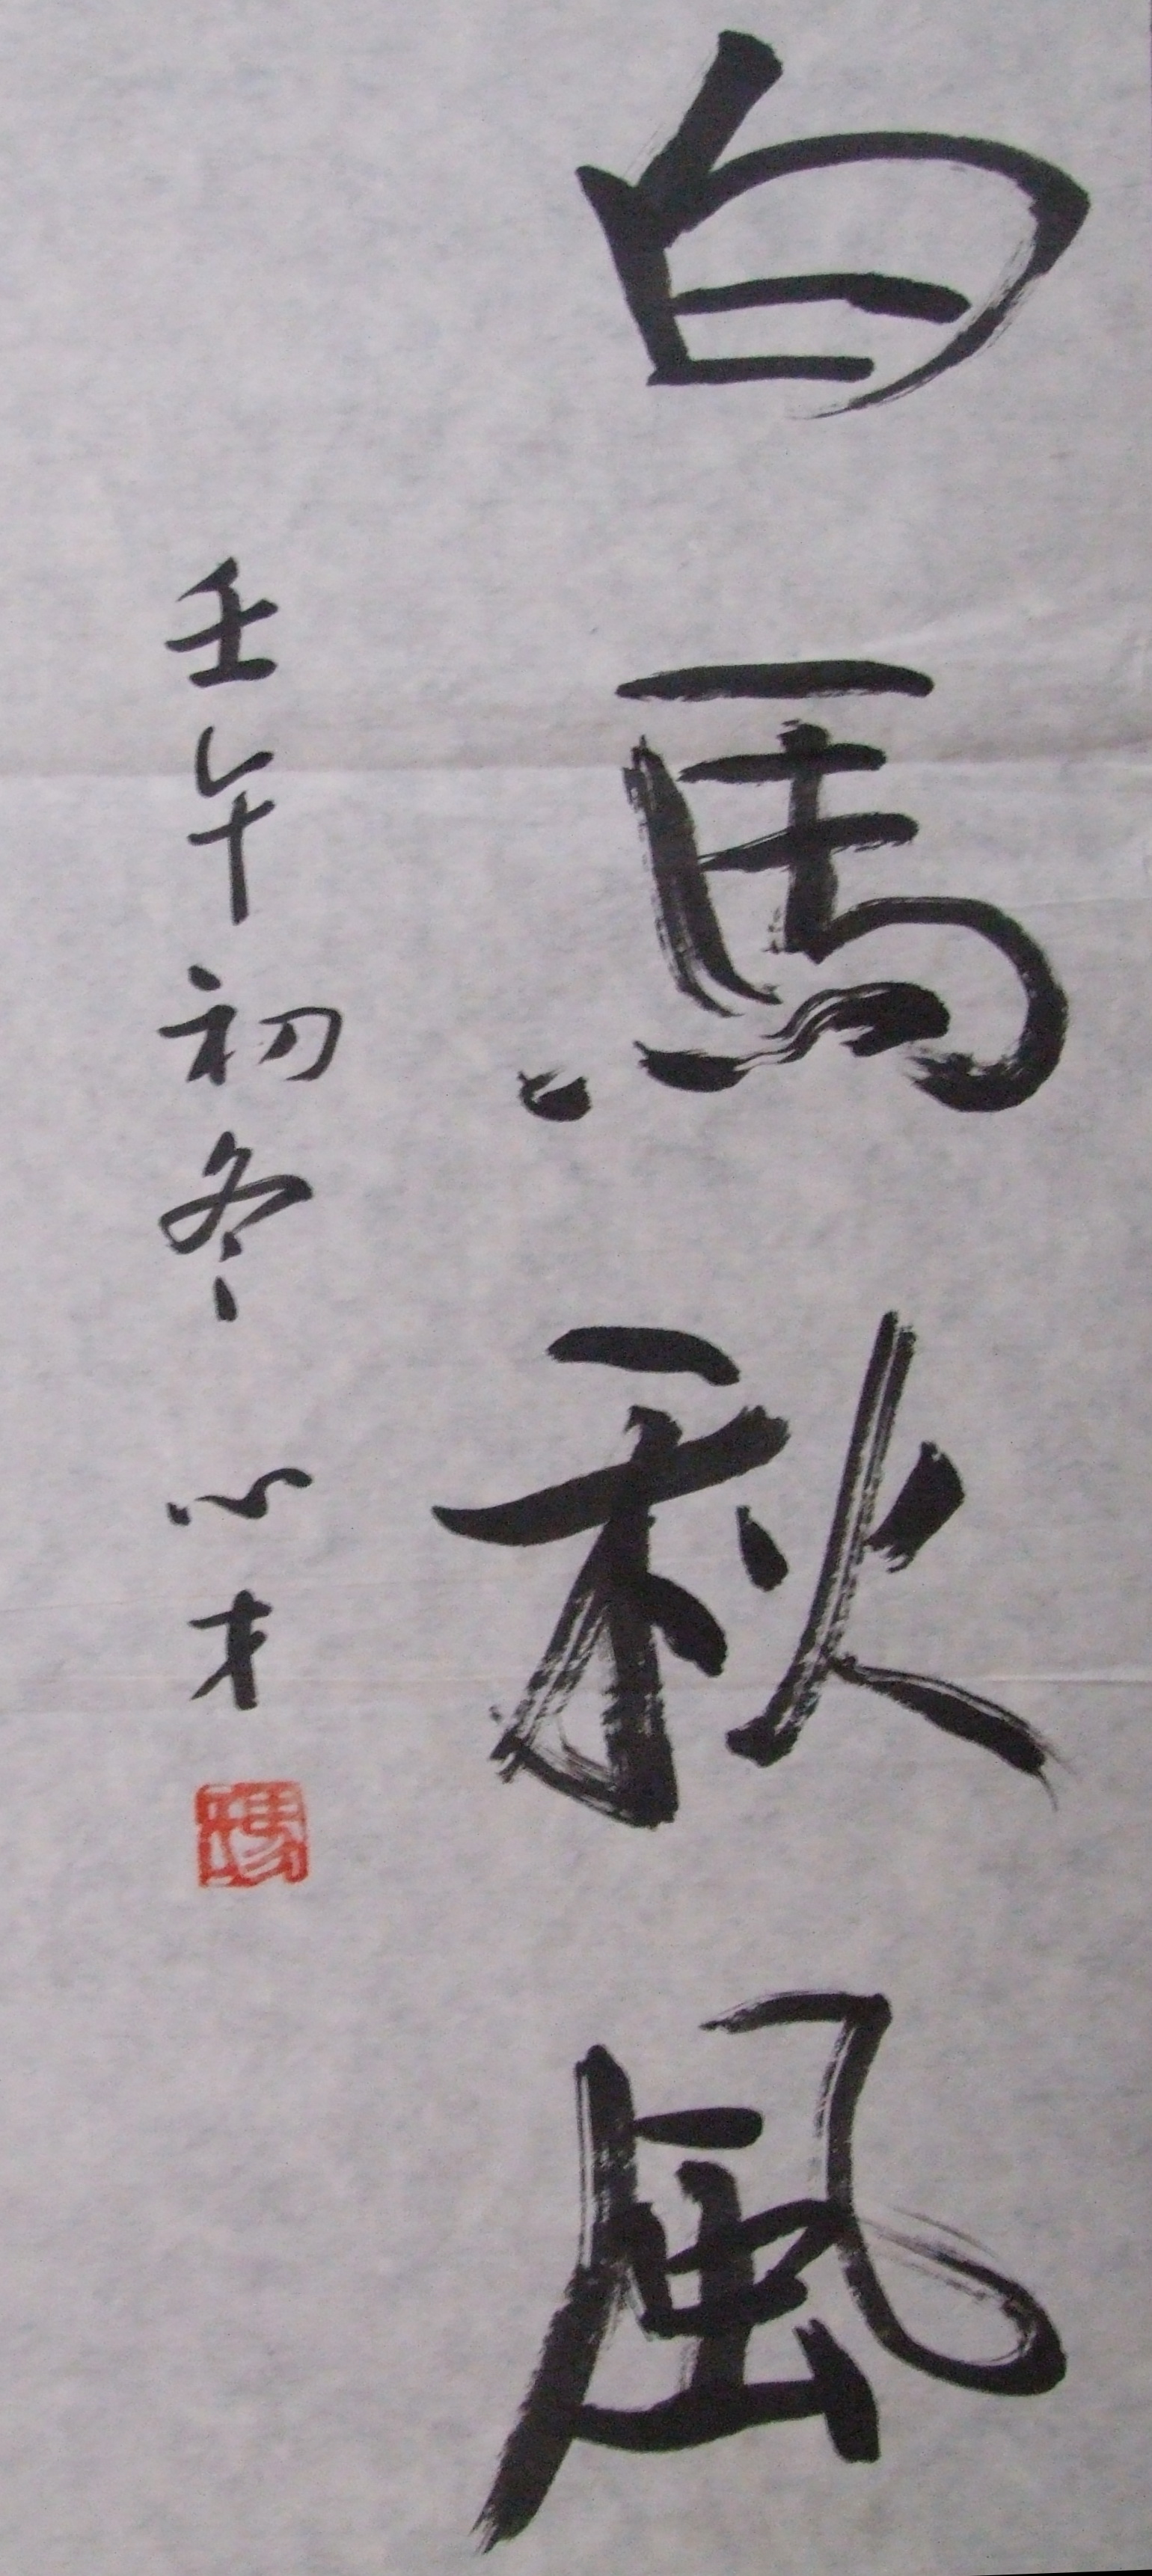 白馬秋風
壬午初冬 心才